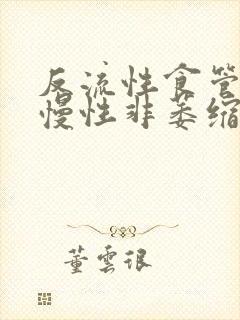 反流性食管
慢性非萎缩
董云很